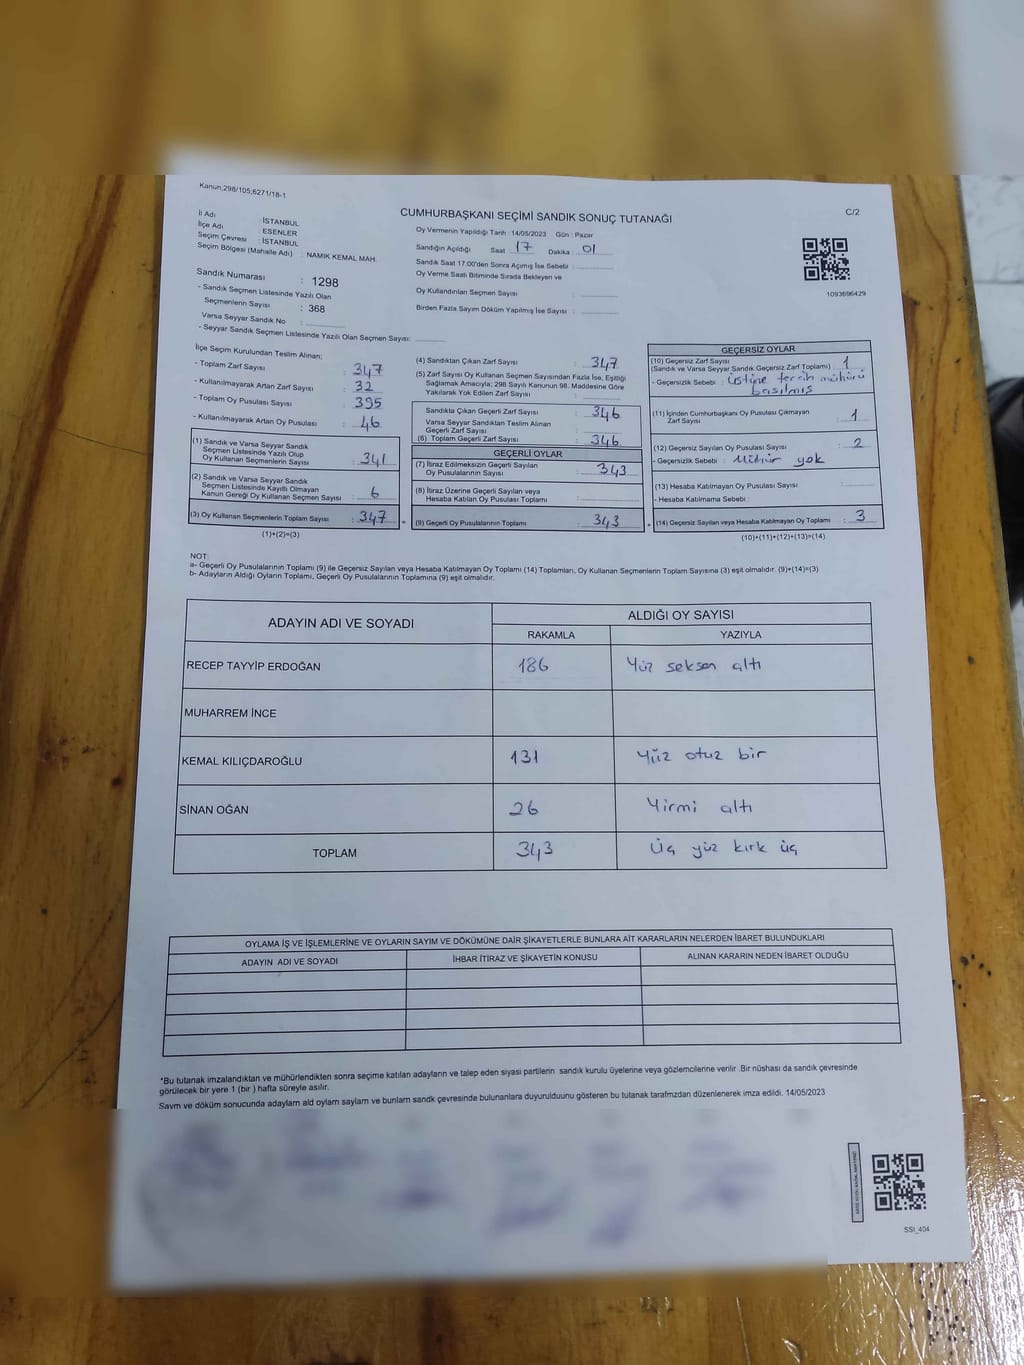 Kanun;298/105;6271/18-1
CUMHURBAŞKANI SEÇİMİ SANDIK SONUÇ TUTANAĞI
C/2
İl Adı : İSTANBUL
İlçe Adı : ESENLER
Seçim Çevresi : İSTANBUL
Seçim Bölgesi (Mahalle Adı) : NAMIK KEMAL MAH.
Sandık Numarası : 1298
- Sandık Seçmen Listesinde Yazılı Olan
Seçmenlerin Sayısı : 368
Varsa Seyyar Sandık No :
- Seyyar Sandık Seçmen Listesinde Yazılı Olan Seçmen Sayısı:
Oy Vermenin Yapıldığı Tarih : 14/05/2023 Gün : Pazar
Sandığın Açıldığı Saat 17 Dakika 01
Sandık Saat 17:00'den Sonra Açımış İse Sebebi :
Oy Verme Saati Bitiminde Sırada Bekleyen ve
Oy Kullandırılan Seçmen Sayısı :
Birden Fazla Sayım Döküm Yapılmış İse Sayısı :
1093696429
İlçe Seçim Kurulundan Teslim Alınan;
- Toplam Zarf Sayısı : 347
- Kullanılmayarak Artan Zarf Sayısı : 32
- Toplam Oy Pusulası Sayısı : 395
- Kullanılmayarak Artan Oy Pusulası : 46
(1) Sandık ve Varsa Seyyar Sandık
Seçmen Listesinde Yazılı Olup
Oy Kullanan Seçmenlerin Sayısı : 341
(2) Sandık ve Varsa Seyyar Sandık
Seçmen Listesinde Kayıtlı Olmayan
Kanun Gereği Oy Kullanan Seçmen Sayısı : 6
(3) Oy Kullanan Seçmenlerin Toplam Sayısı : 347
(1)+(2)=(3)
(4) Sandıktan Çıkan Zarf Sayısı : 347
(5) Zarf Sayısı Oy Kullanan Seçmen Sayısından Fazla İse, Eşitliği
Sağlamak Amacıyla; 298 Sayılı Kanunun 98. Maddesine Göre
Yakılarak Yok Edilen Zarf Sayısı :
Sandıkta Çıkan Geçerli Zarf Sayısı : 346
Varsa Seyyar Sandıktan Teslim Alınan
Geçerli Zarf Sayısı :
(6) Toplam Geçerli Zarf Sayısı : 346
GEÇERLİ OYLAR
(7) İtiraz Edilmeksizin Geçerli Sayılan
Oy Pusulalarının Sayısı : 343
(8) İtiraz Üzerine Geçerli Sayılan veya
Hesaba Katılan Oy Pusulası Toplamı :
(9) Geçerli Oy Pusulalarının Toplamı : 343
GEÇERSİZ OYLAR
(10) Geçersiz Zarf Sayısı : 1
(Sandık ve Varsa Seyyar Sandık Geçersiz Zarf Toplamı)
- Geçersizlik Sebebi : üstüne tercih mühürü
basılmış
(11) İçinden Cumhurbaşkanı Oy Pusulası Çıkmayan
Zarf Sayısı : 1
(12) Geçersiz Sayılan Oy Pusulası Sayısı : 2
- Geçersizlik Sebebi : Mühür yok
(13) Hesaba Katılmayan Oy Pusulası Sayısı :
- Hesaba Katılmama Sebebi :
(14) Geçersiz Sayılan veya Hesaba Katılmayan Oy Toplamı : 3
(10)+(11)+(12)+(13)=(14)
NOT:
a- Geçerli Oy Pusulalarının Toplamı (9) ile Geçersiz Sayılan veya Hesaba Katılmayan Oy Toplamı (14) Toplamları, Oy Kullanan Seçmenlerin Toplam Sayısına (3) eşit olmalıdır. (9)+(14)=(3)
b- Adayların Aldığı Oyların Toplamı, Geçerli Oy Pusulalarının Toplamına (9) eşit olmalıdır.
ADAYIN ADI VE SOYADI ALDIĞI OY SAYISI
RAKAMLA YAZIYLA
RECEP TAYYİP ERDOĞAN 186 Yüz seksen altı
MUHARREM İNCE
KEMAL KILIÇDAROĞLU 131 Yüz otuz bir
SİNAN OĞAN 26 Yirmi altı
TOPLAM 343 Üç yüz kırk üç
OYLAMA İŞ VE İŞLEMLERİNE VE OYLARIN SAYIM VE DÖKÜMÜNE DAİR ŞİKAYETLERLE BUNLARA AİT KARARLARIN NELERDEN İBARET BULUNDUKLARI
ADAYIN ADI VE SOYADI İHBAR İTİRAZ VE ŞİKAYETİN KONUSU ALINAN KARARIN NEDEN İBARET OLDUĞU
*Bu tutanak imzalandıktan ve mühürlendikten sonra seçime katılan adayların ve talep eden siyasi partilerin sandık kurulu üyelerine veya gözlemcilerine verilir .Bir nüshası da sandık çevresinde
görülecek bir yere 1 (bir ) hafta süreyle asılır.
Sayım ve döküm sonucunda adayların ald oyların sayların ve bunların sandk çevresinde bulunanlara duyurulduunu gösteren bu tutanak tarafmzdan düzenlenerek imza edildi. 14/05/2023
SSI_404